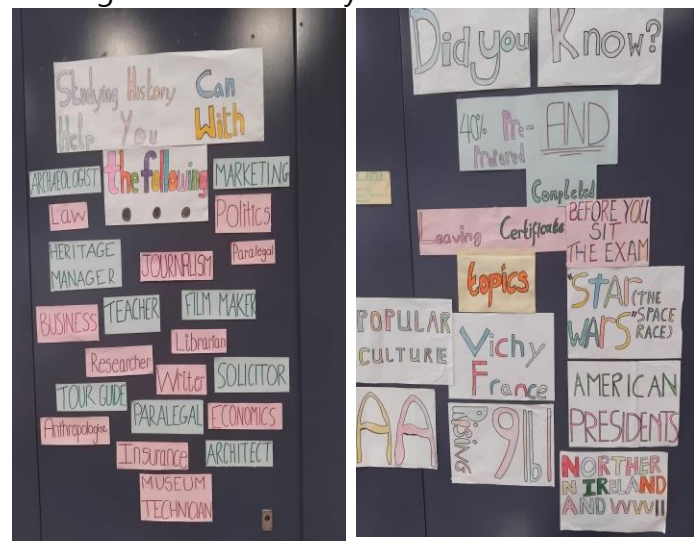 Studying History Can
Help You With
the following
...
ARCHAEOLOGIST
MARKETING
Law
Politics
HERITAGE
MANAGER
JOURNALISM
Paralegal
BUSINESS
TEACHER
FILM MAKER
Librarian
Researcher
Writer
SOLICITOR
TOUR GUIDE
PARALEGAL
ECONOMICS
Anthropologist
Insurance
ARCHITECT
MUSEUM
TECHNICIAN
Did you Know?
40% Pre-
Prepared
AND
Completed
Leaving Certificate
BEFORE YOU
SIT
THE EXAM
topics
"STAR (THE
WARS" SPACE
RACE)
POPULAR
CULTURE
Vichy
France
AMERICAN
PRESIDENTS
AA
RISING
NORTHER
N IRELAND
AND WWII